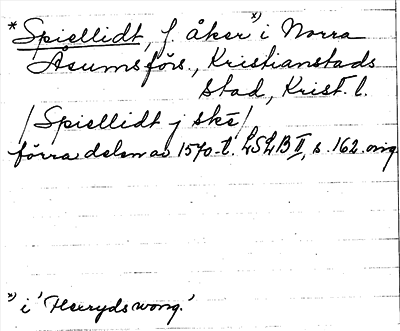 *Spiellidt, f. åker *) i Norra
Åsums förs., Kristianstads
stad, Krist. l.
/Spiellidt j skē/
förra delen av 1570-t. LSLB II, s. 162. omg
*) i 'Hærydswong.'